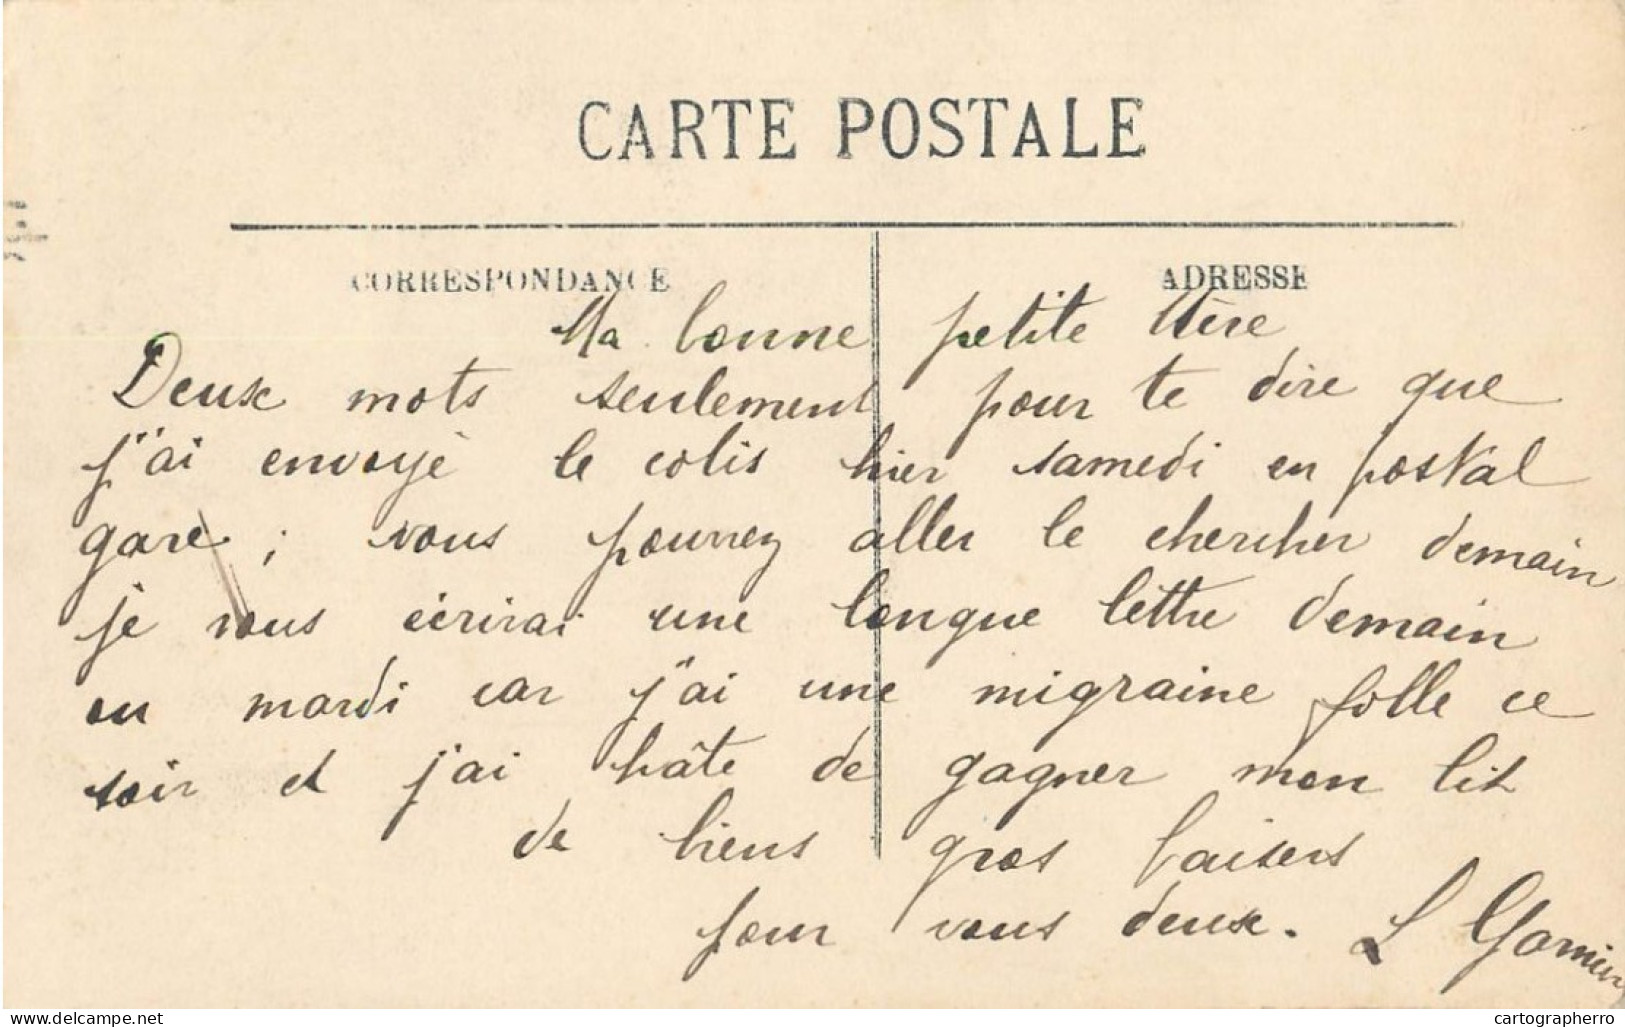 CARTE POSTALE
CORRESPONDANCE
ADRESSE
Ma bonne petite Mère
Deux mots seulement pour te dire que
j'ai envoyé le colis hier samedi en postal
gare ; vous pourrez aller le chercher demain
je vous écrirai une longue lettre demain
ou mardi car j'ai une migraine folle ce
soir et j'ai hâte de gagner mon lit
de biens gros baisers
pour vous deux. L
delcampe.net
cartographerro